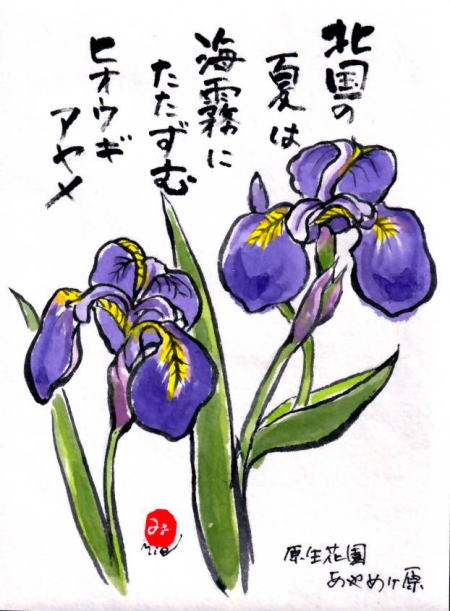 北国の
夏は
海霧に
たたずむ
ヒオウギ
アヤメ
原生花園
あやめヶ原
み
Mie